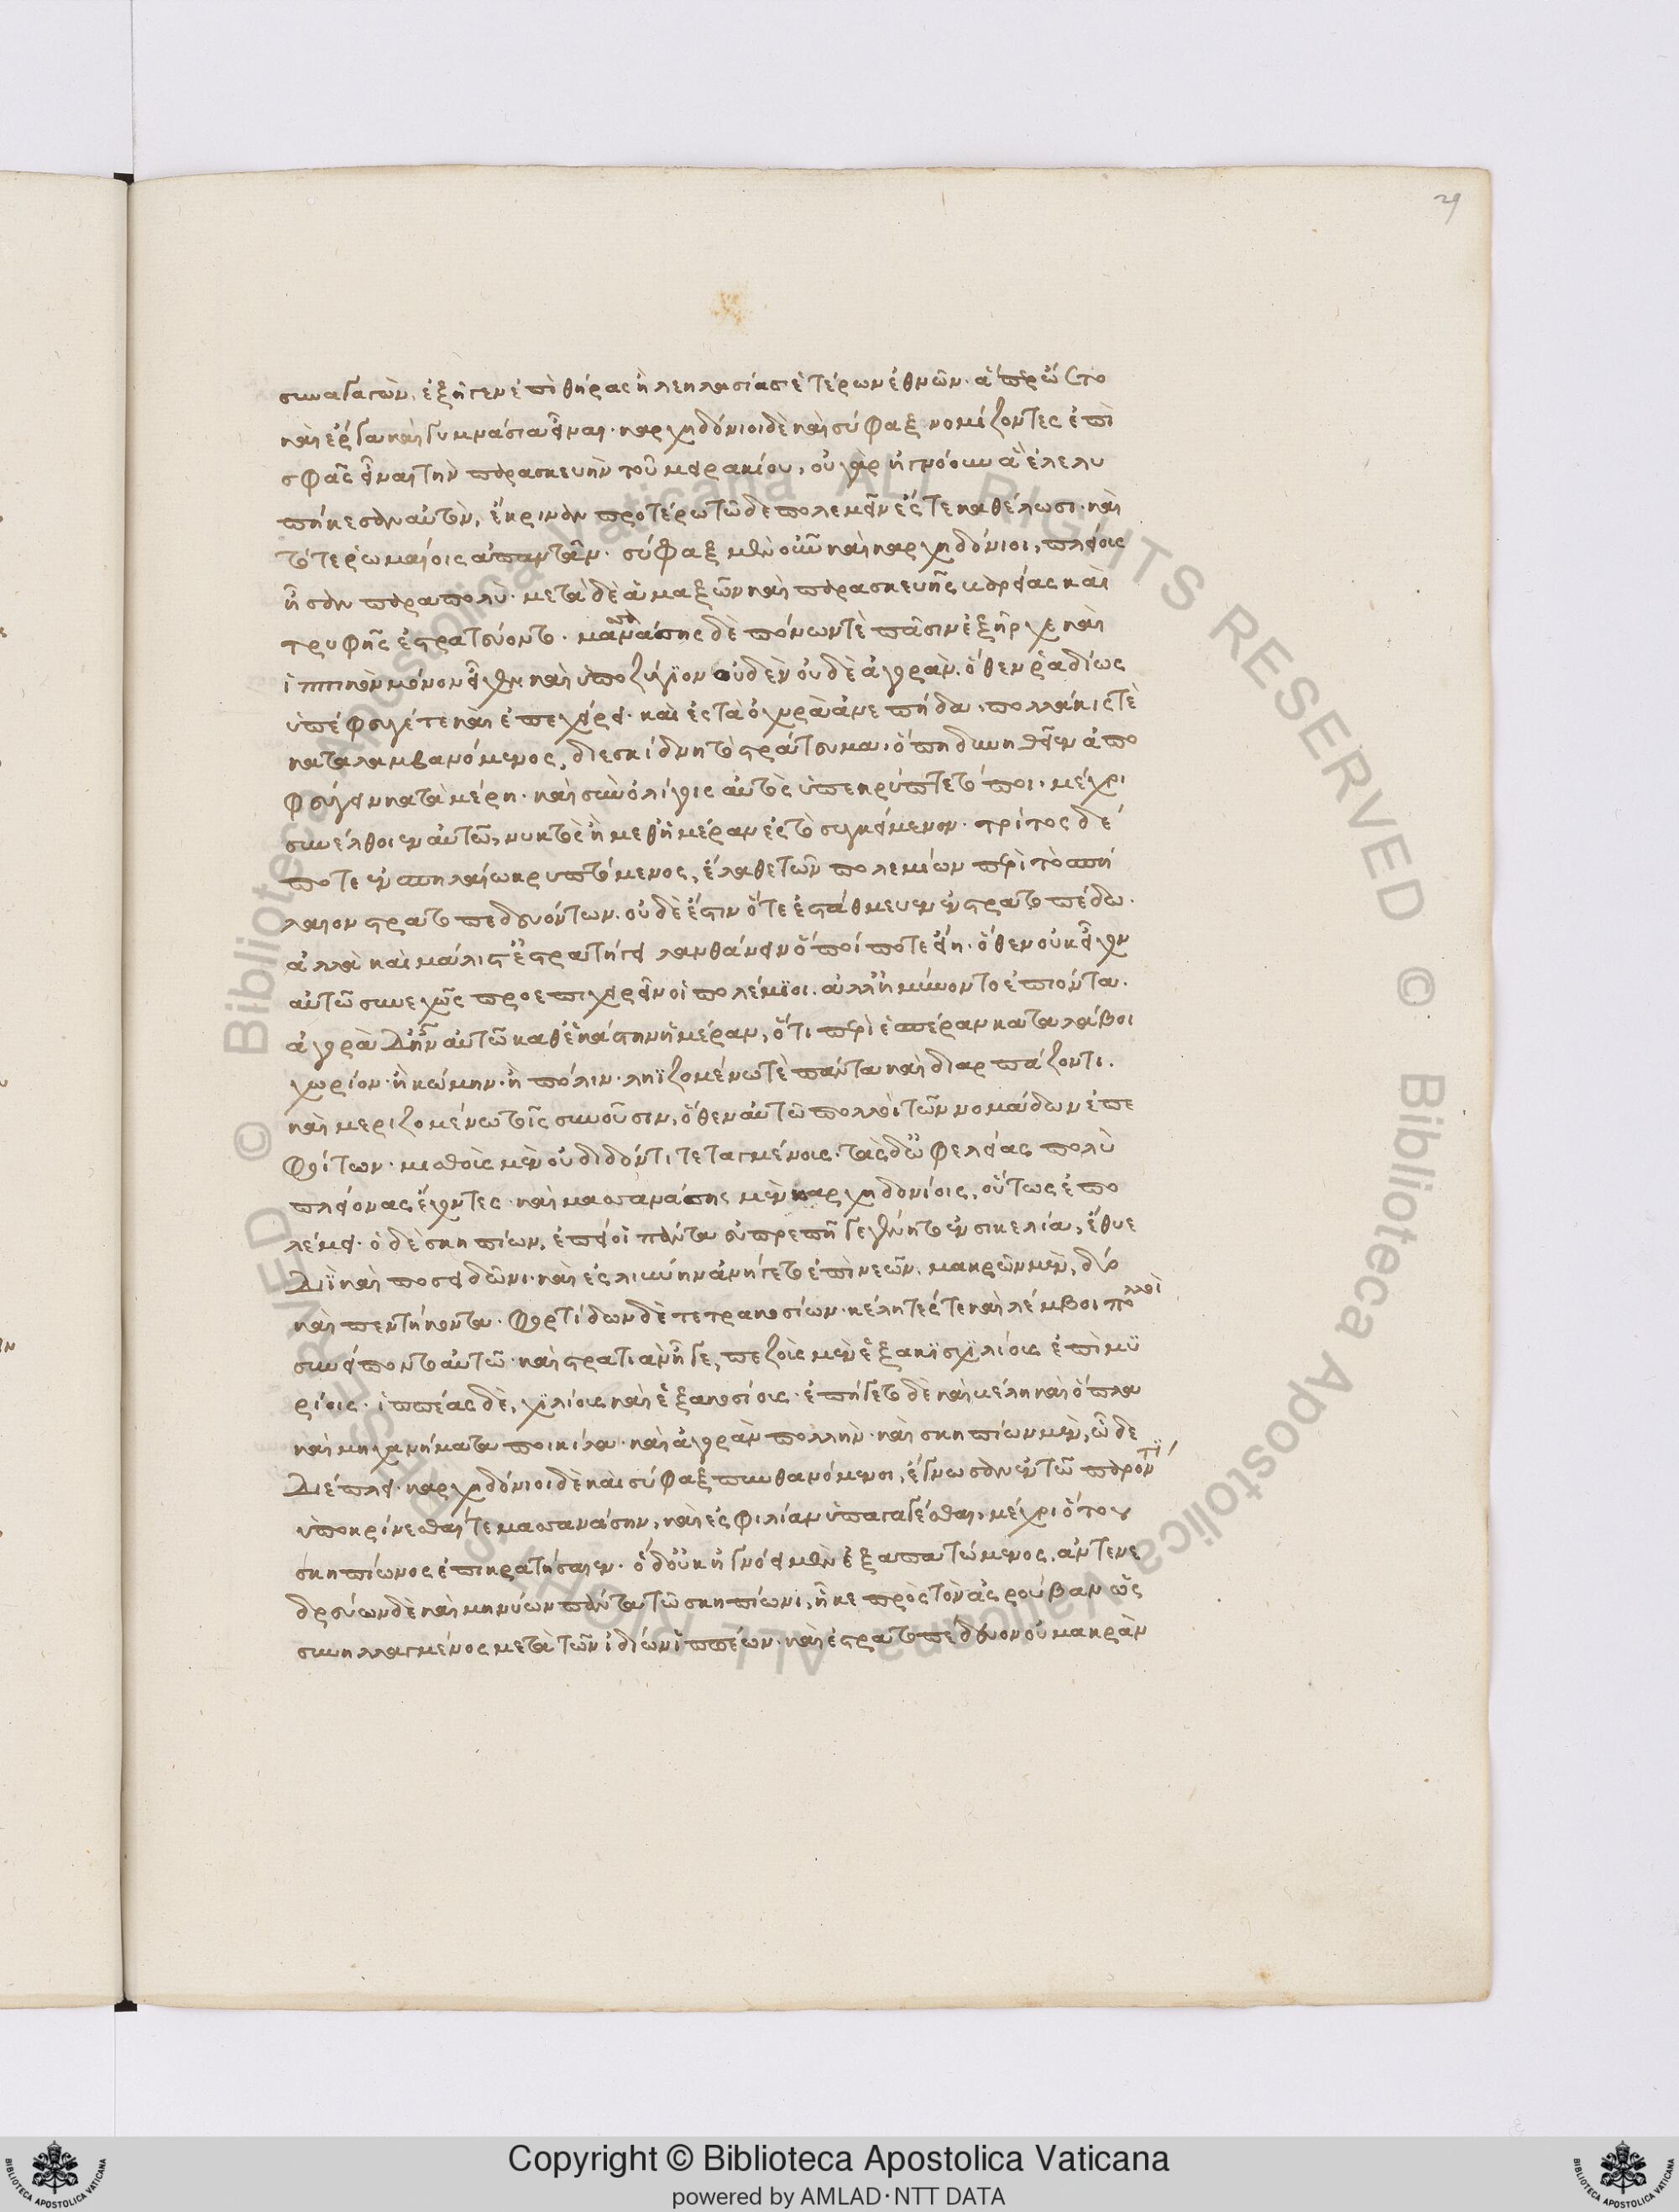 29
συναγαγὼν, ἐξῆγεν ἐπὶ θήρας ἢ λεηλασίας ἑτέρων ἐθνῶν· ἃ πρῴετο
καὶ ἔργα καὶ γυμνάσια εἶναι· καρχηδόνιοι δὲ καὶ σύφαξ νομίζοντες ἐπὶ
σφᾶς εἶναι τὴν παρασκευὴν τοῦ μειρακίου, οὐ γὰρ ἠγνόουν ἃ ἐλελυ
πήκεσαν αὐτὸν, ἔκριναν προτέρω τῶδε πολεμεῖν ἔστε καθέλωσι· καὶ
τότε ῥωμαίοις ἀπαντᾶν· σύφαξ μὲν οὖν καὶ καρχηδόνιοι, πλείοις
ἦσαν παραπολὺ· μετὰ δὲ ἁμαξῶν καὶ παρασκευῆς βαρείας καὶ
τρυφῆς ἐστρατεύοντο· μασσανάσσης δὲ πόνων τὲ πᾶσιν ἐξῆρχε καὶ
ἱππικὸν μόνον εἶχεν καὶ ὑποζύγιον οὐδὲν οὐδὲ ἀγορὰν· ὅθεν ῥαδίως
ὑπέφευγέ τε καὶ ἐπεχείρει· καὶ ἐς τὰ ὀχυρὰ ἀνεπήδα· πολλάκις τὲ
καταλαμβανόμενος, διεσκίδνη τὸ στράτευμα· ὅπη δύνηθεῖεν ἀπο
φεύγειν κατὰ μέρη· καὶ σὺν ὀλίγοις αὐτὸς ὑπεκρύπτετό ποι· μέχρι
συνέλθοιεν αὐτῶ, νυκτὸς ἢ μεθημέραν ἐς τὸ συγκείμενον· τρίτος δέ
ποτε ἐν σπηλαίω κρυπτόμενος, ἔλαθε τῶν πολεμίων περὶ τὸ σπή
λαιον στρατοπεδευόντων· οὐδὲ ἔστιν ὅτε ἐστάθμευεν ἐν στρατοπέδω·
ἀλλὰ καὶ μάλιστ' ἐστρατήγει λανθάνειν ὅποί ποτε εἴη· ὅθεν οὐκ εἶχον
αὐτῶ συνεχῶς προεπιχειρεῖν οἱ πολέμιοι· ἀλλ' ἠμύνοντο ἐπιόντα·
ἀγορὰ δ' ἦν αὐτῶ καθἑκάστην ἡμέραν, ὅτι περὶ ἑσπέραν καταλάβοι
χωρίον· ἢ κώμην· ἢ πόλιν· ληϊζομένω τὲ πάντα καὶ διαρπάζοντι·
καὶ μεριζομένω τοῖς συνοῦσιν, ὅθεν αὐτῶ πολλοὶ τῶν νομάδων ἐπε
φοίτων· μισθοὺς μὲν οὐ διδόντι τεταγμένοις· τὰς δ' ὠφελείας πολὺ
πλείονας ἔχοντες· καὶ μασσανάσσης μὲν καρχηδονίοις, οὕτως ἐπο
λέμει· ὁ δὲ σκηπίων, ἐπεί οἱ πάντα εὐπρεπῆ γεγένητο ἐν σικελία, ἔθυε
Διῒ καὶ ποσειδῶνι· καὶ ἐς λιβύην ἀνήγετο ἐπὶ νεῶν· μακρῶν μὲν, δύο
καὶ πεντήκοντα· φορτίδων δὲ τετρακοσίων· κέλητές τε καὶ λέμβοι πολλοὶ
συνείποντο αὐτῶ· καὶ στρατιὰν ἦγε, πεζοὺς μὲν ἑξακϊσχϊλίους ἐπὶ μϋ
ρίοις· ἱππέας δὲ, χϊλίους καὶ ἑξακοσίους· ἐπήγετο δὲ καὶ βέλη καὶ ὅπλα
καὶ μηχανήματα ποικίλα· καὶ ἀγορὰν πολλὴν· καὶ σκηπίων μὲν, ὧδε
Διέπλει· καρχηδόνιοι δὲ καὶ σύφαξ πυνθανόμενοι, ἔγνωσαν ἐν τῶ παρόντι
ὑποκρίνεσθαί τε μασσανάσσην, καὶ ἐς φιλίαν ὑπαγαγέσθαι, μέχρι ὅτου
σκηπίωνος ἐπικρατήσαιεν· ὁ δ' οὐκ ἠγνόει μὲν ἐξαπατώμενος, ἀντενε
δρεύων δὲ καὶ μηνύων πάντα τῶ σκηπίωνι, ἧκε πρὸς τὸν ἀσρούβαν ὡς
συνηλλαγμένος μετὰ τῶν ἰδίων ἱππέων· καὶ ἐστρατοπέδευον οὐ μακρὰν
Copyright © Biblioteca Apostolica Vaticana
powered by AMLAD·NTT DATA